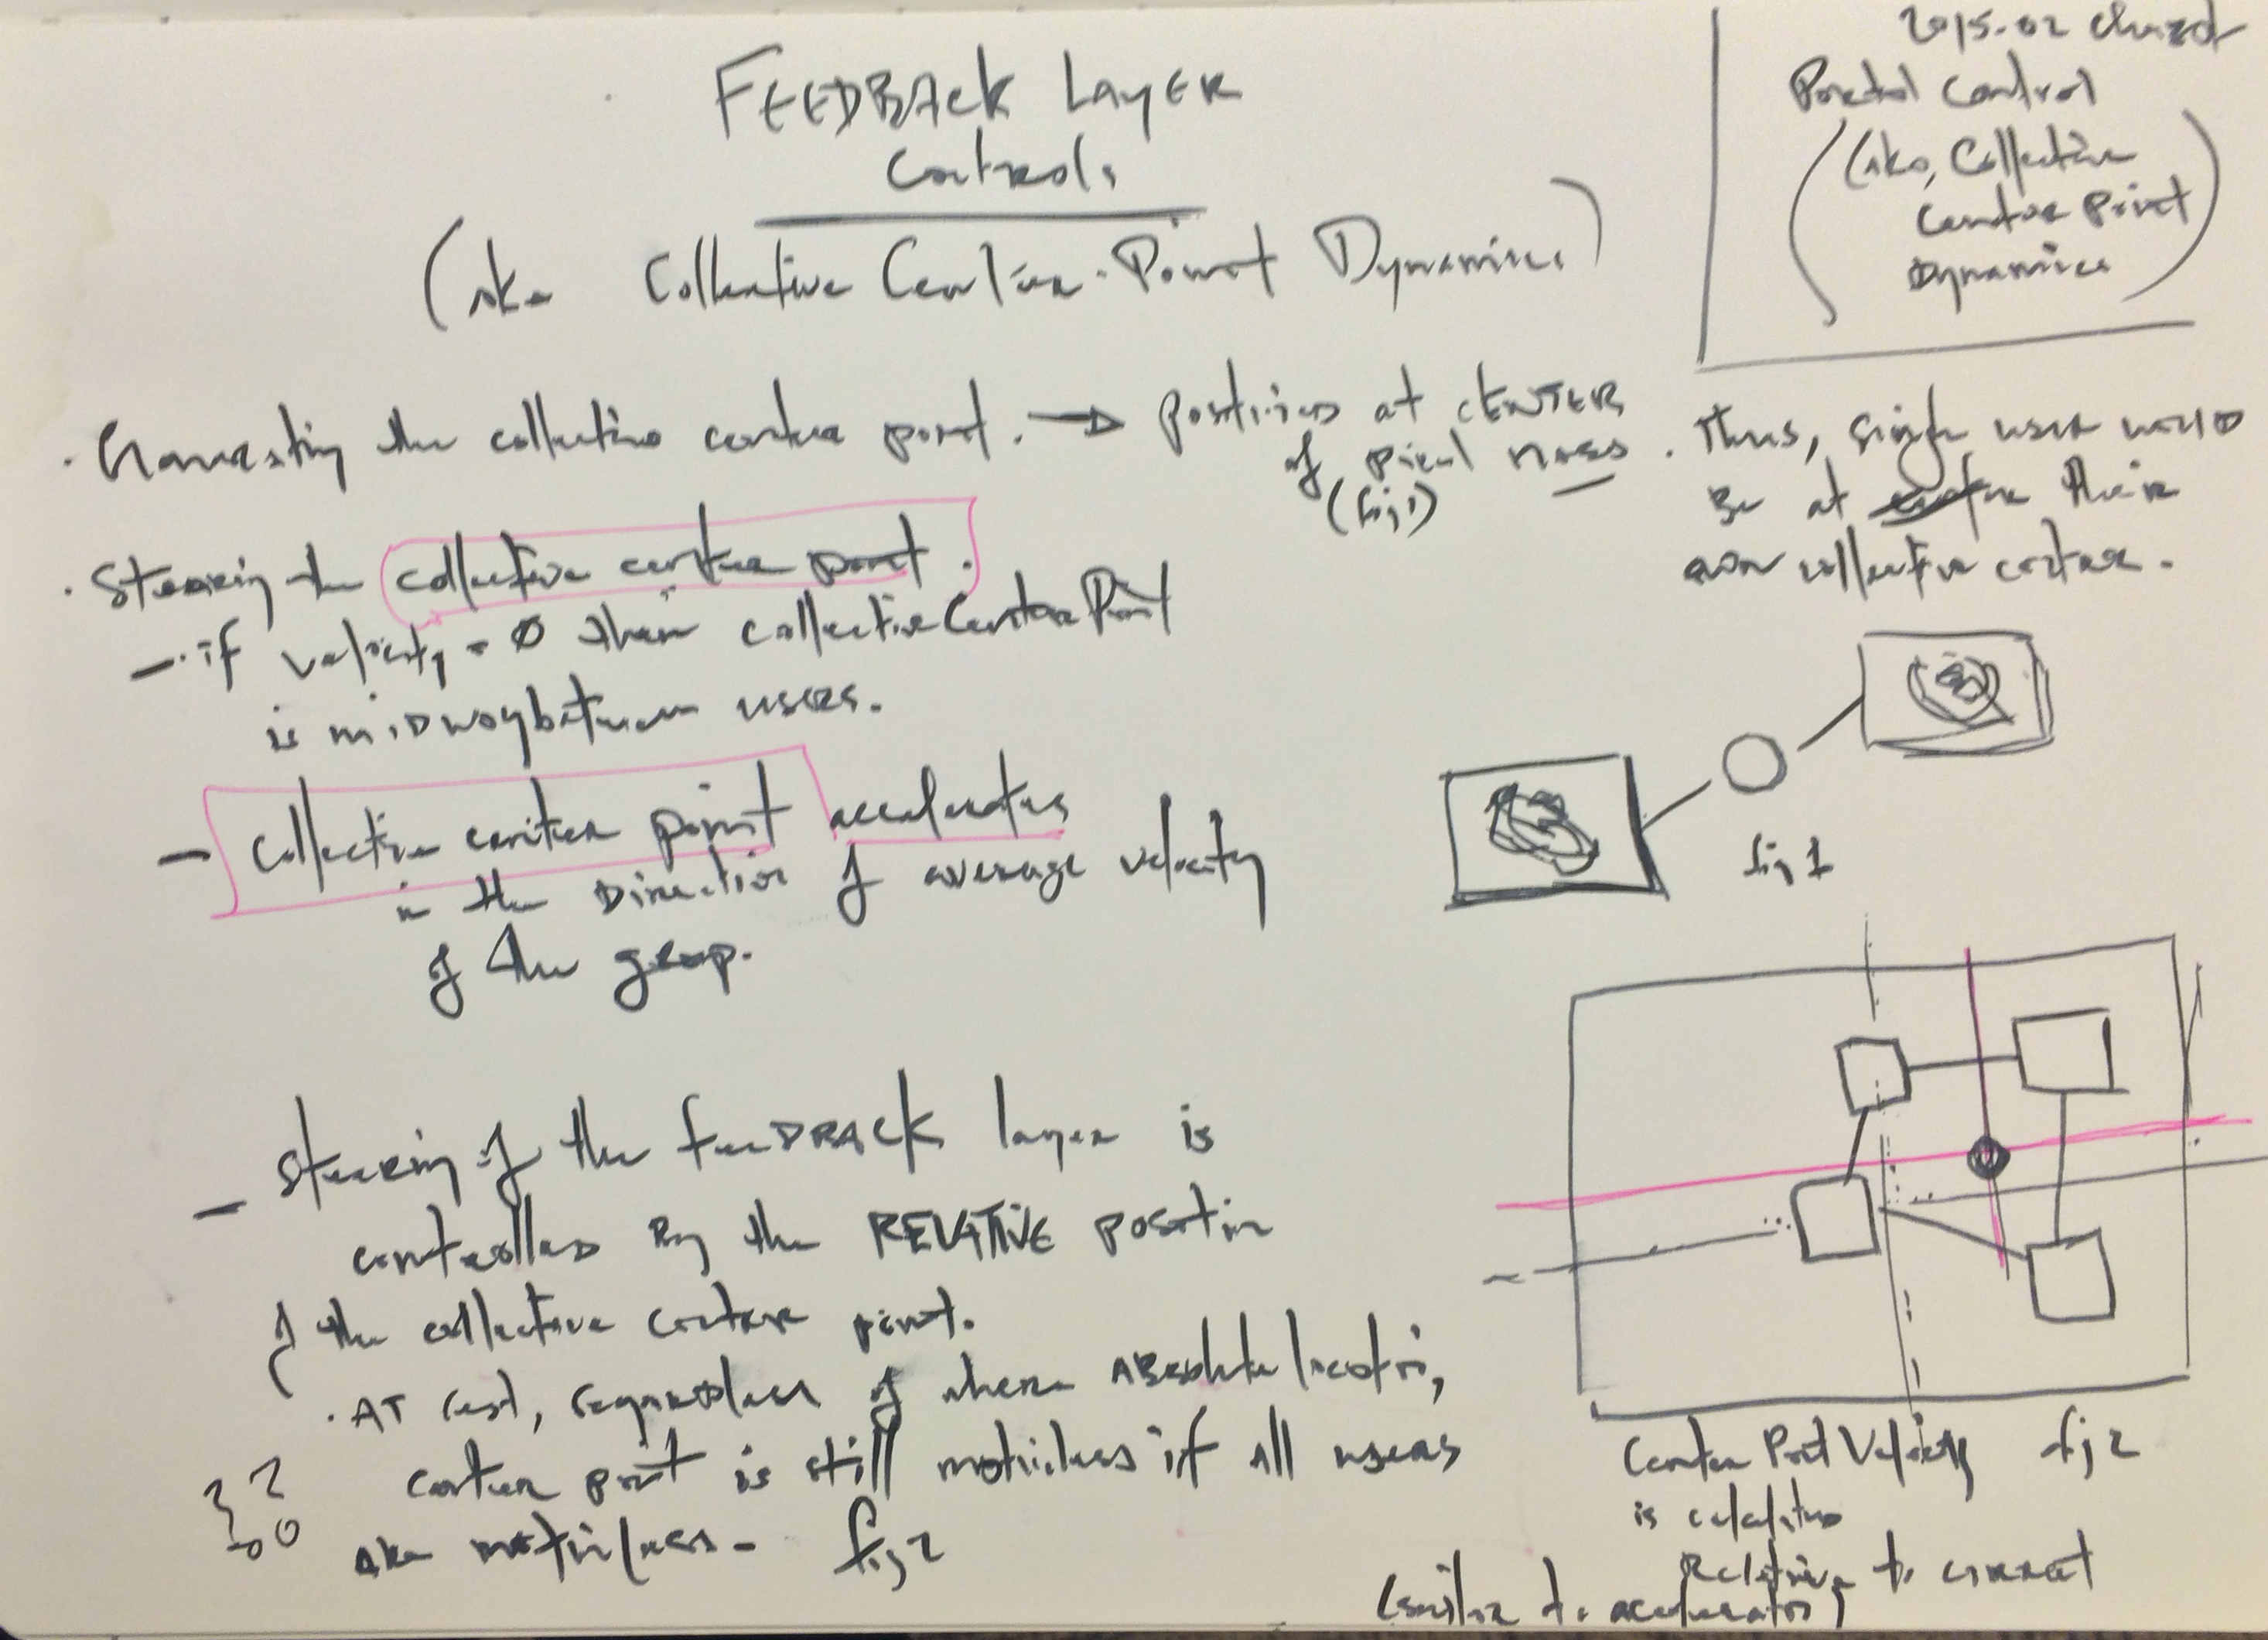 FEEDBACK LAYER
Controls
(aka Collective Center-Point Dynamics)
2015.02
Portal Control
(aka, Collective
Center Point
Dynamics
· Generating the collective center point. → positions at CENTER
of pixel mass
(fig 1)
. Thus, single user would
be at their
own collective center.
· Steering the collective center point.
- if velocity = 0 then collective Center Point
is midway between users.
- Collective center point accelerates
in the Direction of average velocity
of the group.
fig 1
- Steering of the feedback layer is
controlled by the RELATIVE position
of the collective center point.
· AT rest, regardless of where ABsolute location,
center point is still motionless if all users
are motionless. fig 2
??
Center Point Velocity fig 2
is calculated
Relative to current
(similar to acceleration)